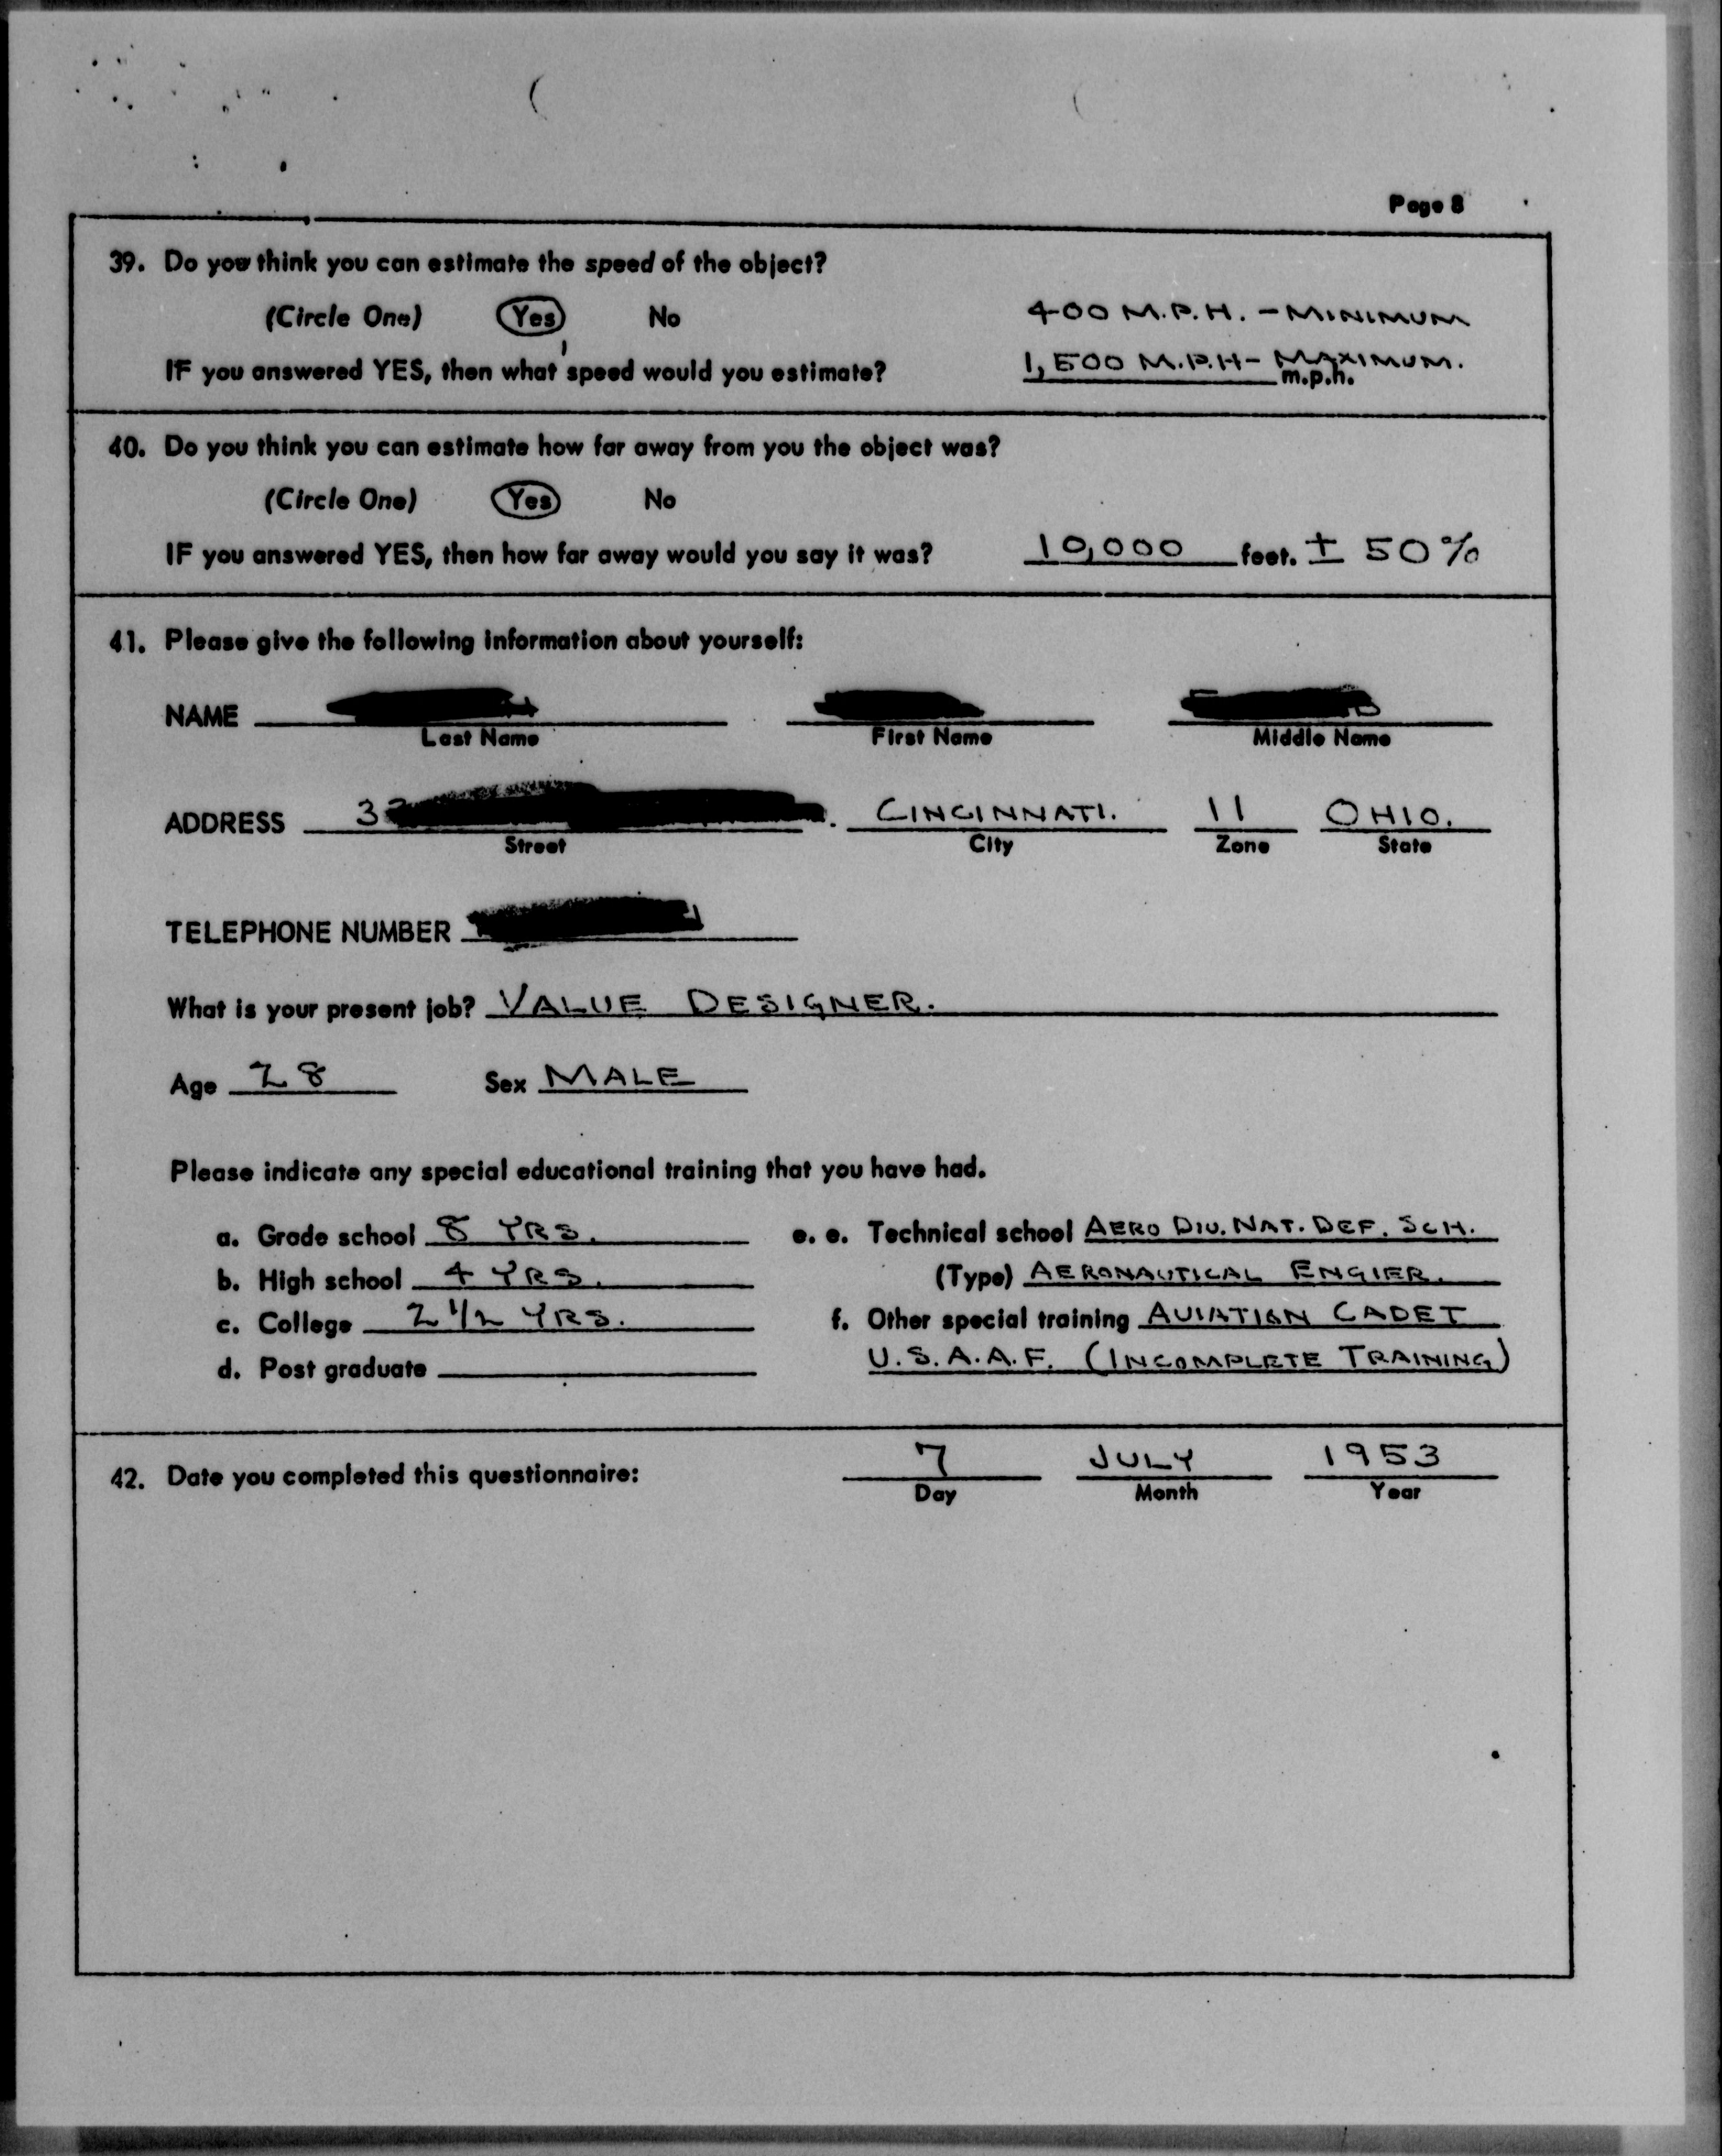 Page 8
39. Do you think you can estimate the speed of the object?
(Circle One) Yes No 400 M.P.H. - MINIMUM
IF you answered YES, then what speed would you estimate? 1,500 M.P.H- MAXIMUM. m.p.h.
40. Do you think you can estimate how far away from you the object was?
(Circle One) Yes No
IF you answered YES, then how far away would you say it was? 10,000 feet. ± 50%
41. Please give the following information about yourself:
NAME
Last Name First Name Middle Name
ADDRESS 3 CINCINNATI. 11 OHIO.
Street City Zone State
TELEPHONE NUMBER
What is your present job? VALUE DESIGNER.
Age 28 Sex MALE
Please indicate any special educational training that you have had.
a. Grade school 8 YRS. e. e. Technical school AERO DIV. NAT. DEF. SCH.
b. High school 4 YRS. (Type) AERONAUTICAL ENGIER.
c. College 2 1/2 YRS. f. Other special training AVIATION CADET
d. Post graduate U.S.A.A.F. (INCOMPLETE TRAINING)
42. Date you completed this questionnaire: 7 JULY 1953
Day Month Year